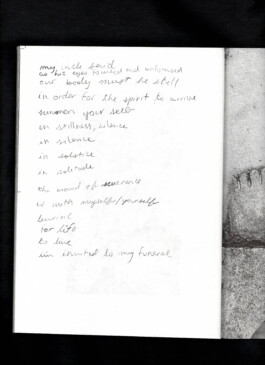 my uncle said
as his eyes rounded and widened
our body must be still
in order for the spirit to arrive
summon your self
in stillness, silence
in silence
in solstice
in solitude
the wound of
or with myself/yourself
burial
for life
to live
im invited to my funeral